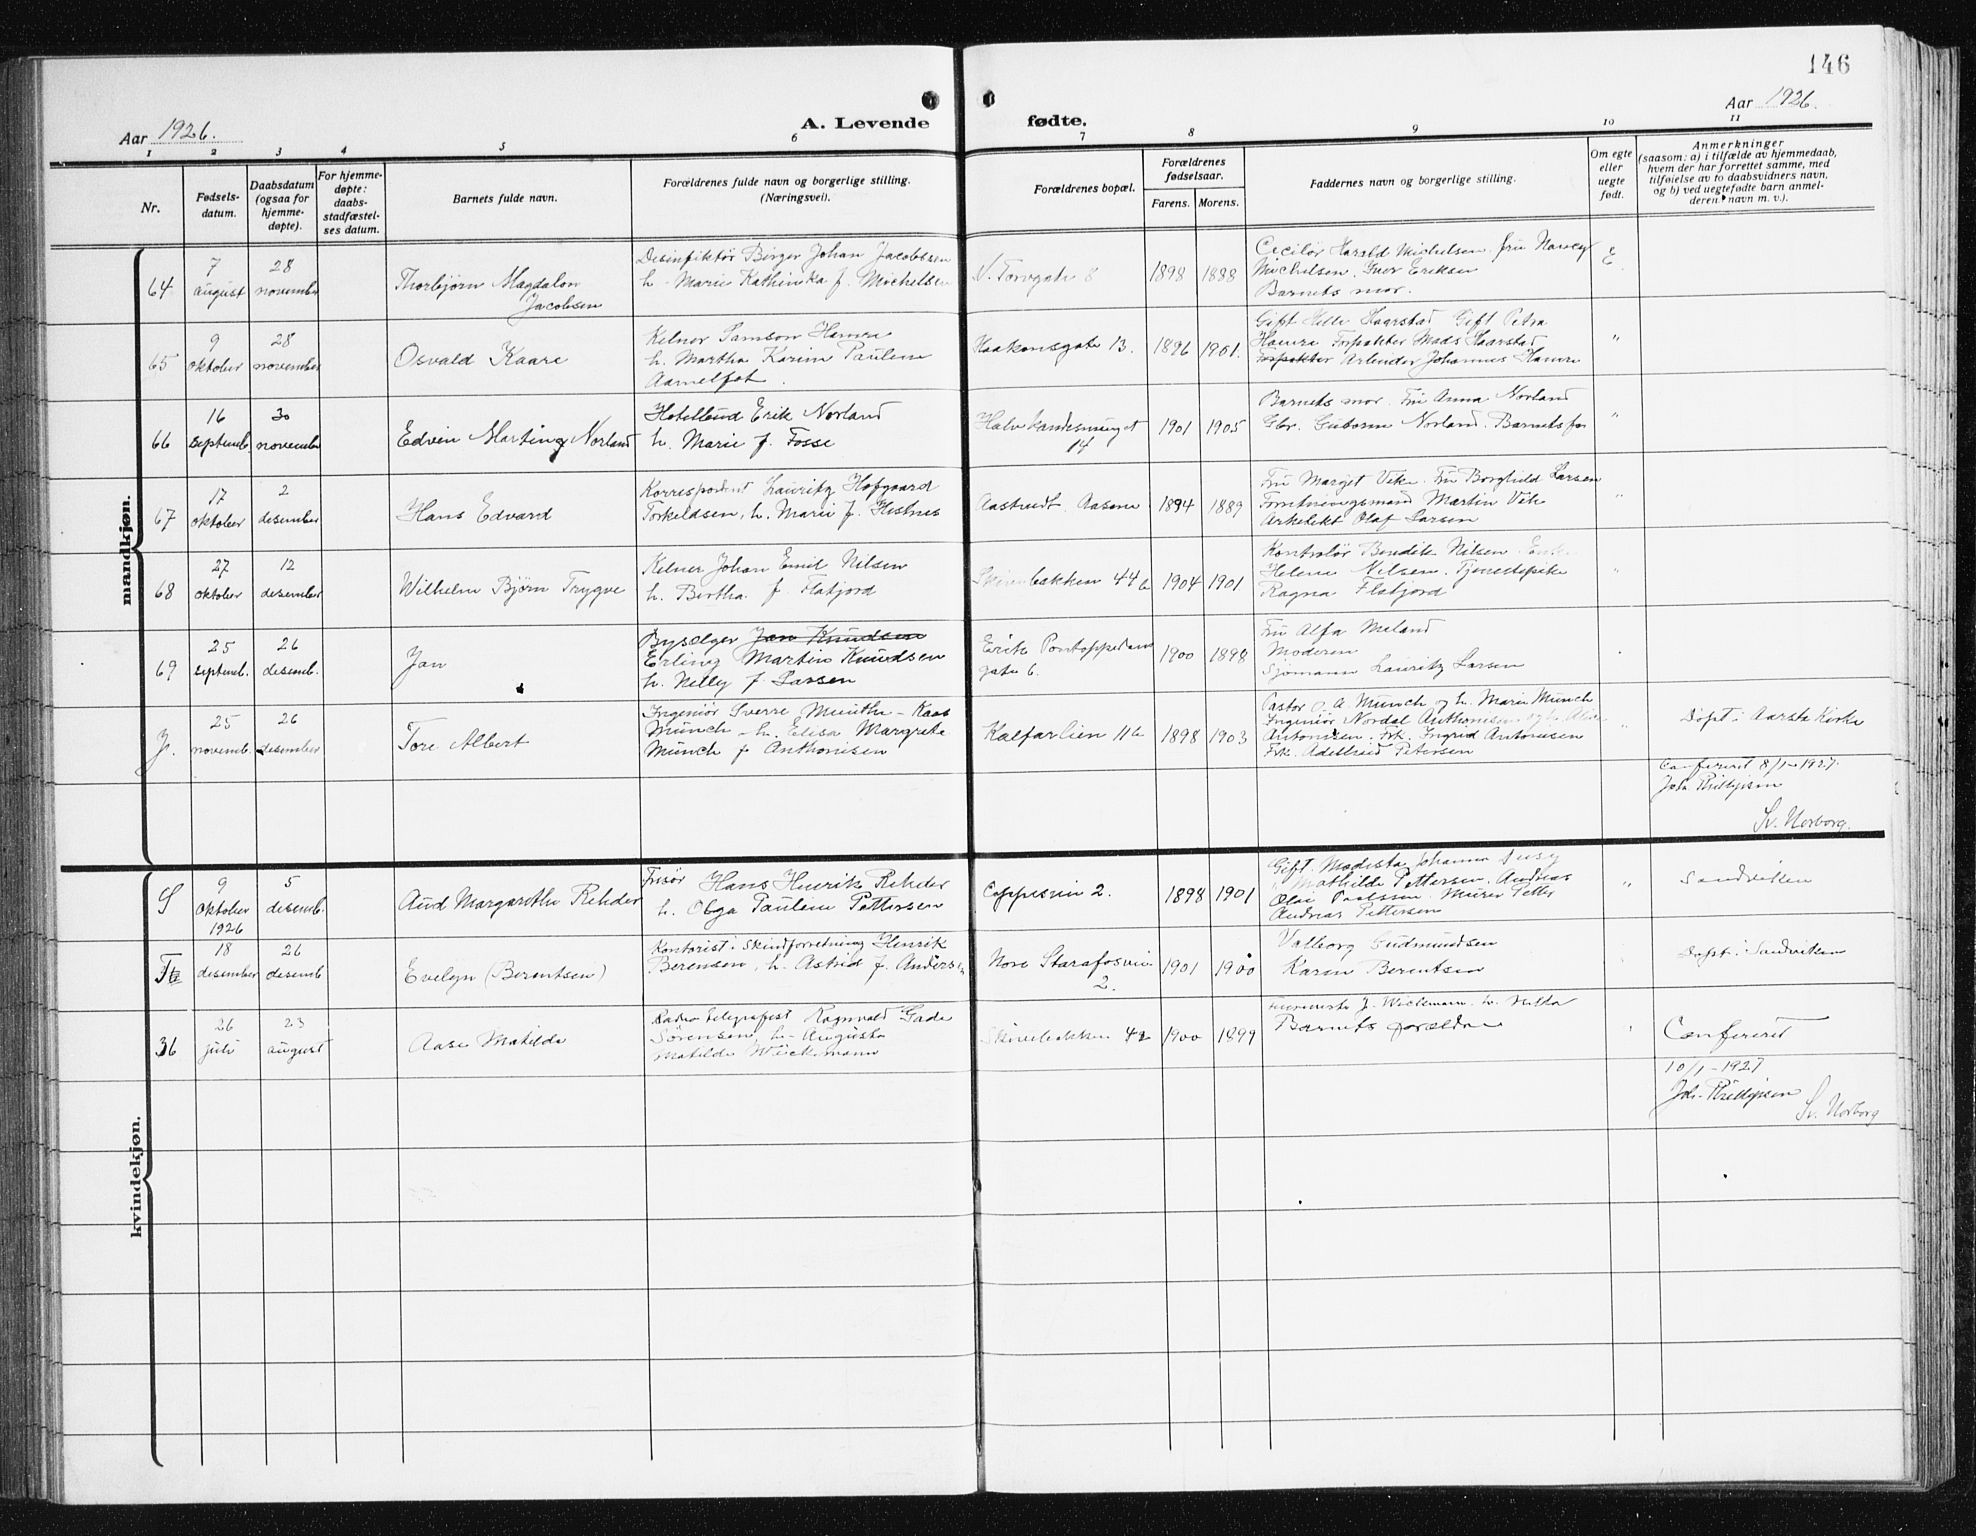 146
Aar 1926.
A. Levende
fødte.
Aar 1926.
1 2 3 4 5 6 7 8 9 10 11
Nr.
Fødsels-
datum.
Daabsdatum
(ogsaa for
hjemme-
døpte).
For hjemme-
døpte:
daabs-
stadfæstel-
ses datum.
Barnets fulde navn.
Forældrenes fulde navn og borgerlige stilling.
(Næringsvei).
Forældrenes bopæl.
Forældrenes
fødselsaar.
Farens. Morens.
Faddernes navn og borgerlige stilling.
Om egte
eller
uegte
født.
Anmerkninger
(saasom: a) i tilfælde av hjemmedaab,
hvem der har forrettet samme, med
tilføielse av to daabsvidners navn,
og b) ved uegtefødte barn anmel-
deren's navn m. v.).
mandkjøn.
64
7
august
28
november
Thorbjørn Magdalon
Jacobsen
Desinfiktør Birger Johan Jacobsen
h. Marie Kathinka f. Michelsen
N. Torvgate 8
1898 1888
Harald Michelsen. fru Nancy
Michelsen. Iver Eriksen
Barnets mor.
E.
65
9
oktober
28
november
Osvald Kaare
Kelner Samson Hamre
h. Martha Karine Pauline
Haakonsgate 13.
1896 1901.
Gift Helle Haarstad Gift Petra
Hamre Forpakter Mads Haarstad
Forpakter Arbeider Johannes Hamre
"
66
16
septemb.
30
novembe
Edvin Marting Norland
Hotelbud Erik Norland
h. Marie f. Fosse
14
1901 1905
Barnets mor. Fru Anna Norland
Gbr. Norland. Barnets far
"
67
17
oktober
2
desember
Hans Edvard
Korrespondent Lauritz Hofgaard
Torkeldsen, h. Marie f.
Aastredt. Aasane
1894 1889
Fru Margit Vik. Fru Borghild Larsen
Forretningsmand Martin Vik
Arkitekt Olaf Larsen
"
68
27
oktober
12
desember
Wilhelm Bjørn Trygve
Kelner Johan Emil Nilsen
h. Bertha f. Flatjord
Skivebakken 44 b
1904 1901
Kontrolør Bendik Nilsen. Enke
Helene Nilsen. Tjenestepike
Ragna Flatjord
"
69
25
septemb.
26
desemb.
Jan
Bysælger Jan Knudsen
Erling Martin Knudsen
h. Nelly f. Larsen
Erik Pontoppidans
gate 6.
1900 1898
Fru Alfa Meland
Moderen
Sjømann Lauritz Larsen
J.
25
novemb.
26
desember
Tore Albert
Ingeniør Sverre Munthe-Kaas
Münch - h. Elisa Margrete
Münch f Anthonisen
Kalfarlien 11b
1898 1903
Pastor O. A. Münch og h. Marie Münch
Ingeniør Nordal Anthonisen og h. Alice
Antonisen. Frk. Ingrid Antonisen
Frk. Adelheid Petersen
"
Døpt i Aarstad Kirke
Confereret 8/1-1927.
Joh. Phillipsen
Sv. Norborg.
kvindekjøn.
S
9
oktober
1926
5
desemb.
Aud Margarethe Rehder
Frisør Hans Henrik Rehder
h. Olga Pauline Pettersen
Coppesvei 2.
1898 1901
Gift. Modista Johanna
" Mathilde Pettersen. Andreas
Olai Paulssen. Murer Petter
Andreas Pettersen
"
Sandviken
18
desember
26
desemb
Evelyn (Berentsen)
Kontorist i Skindforretning Henrik
Berensen, h. Astrid f. Andersen
Nore Starefosvei
2.
1901 1900
Valborg Gudmundsen
Karen Berentsen
Døpt i Sandviken
36
26
juli
23
august
Aase Matilde
Radio telegrafist Ragnvald Gade
Sørensen, h. Augusta
Matilde Wickmann
Skivebakken 42
1900 1899
Barnets forældre
"
Confereret
10/1-1927
Joh. Phillipsen
Sv. Norborg